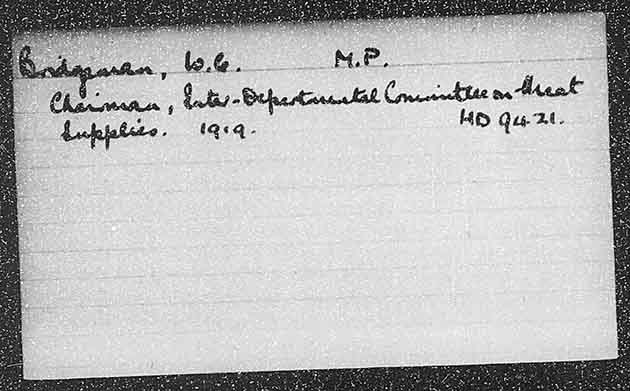 Bridgeman, W.C. M.P.
Chairman, Inter-Departmental Committee on Meat
Supplies. 1919. HD 9421.